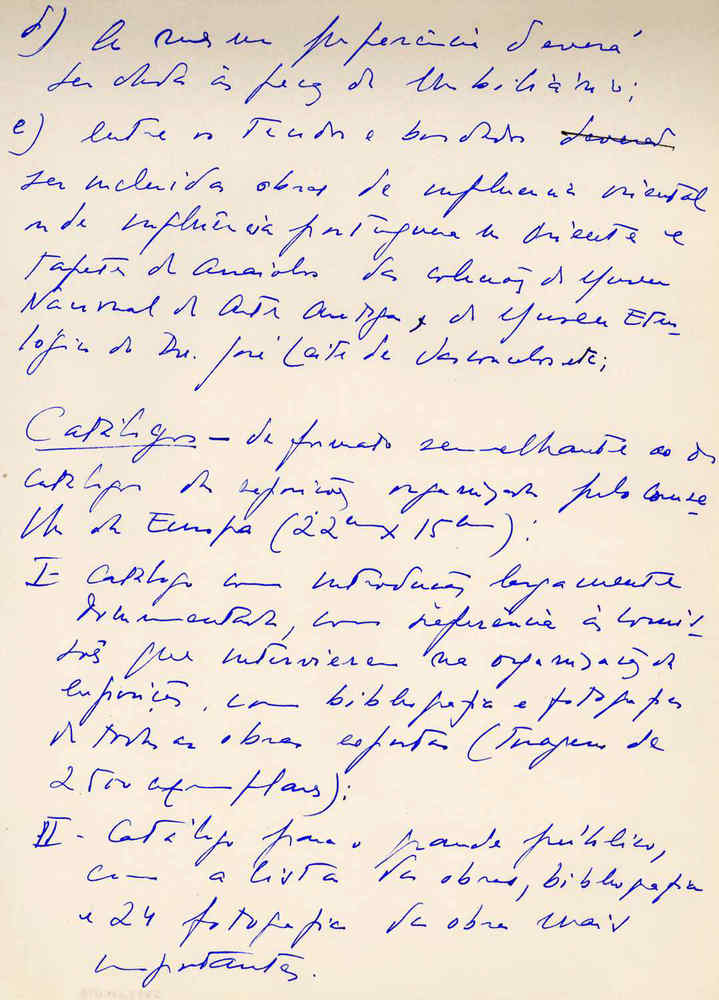 d) A mesma preferência deverá
ser dada às peças de Mobiliário;
e) Entre os Tecidos e bordados deverão
ser incluidas obras de influencia oriental
e de influência portuguesa no Oriente e
tapetes de Arraiolos das colecções do Museu
Nacional de Arte Antiga, e do Museu Etno-
lógico do Dr. José Leite de Vasconcelos etc;
Catálogos - de formato semelhante ao dos
catálogos das exposições organizadas pelo Conse-
lho da Europa (22cm x 15cm):
I- Catálogo com introdução largamente
documentada, com referência às Comis-
sões que intervieram na organização da
Exposição, com bibliografia e fotografias
de todas as obras expostas (tiragem de
2.500 exemplares);
II- Catálogo para o grande público,
com a lista das obras, bibliografia
e 24 fotografias das obras mais
importantes.